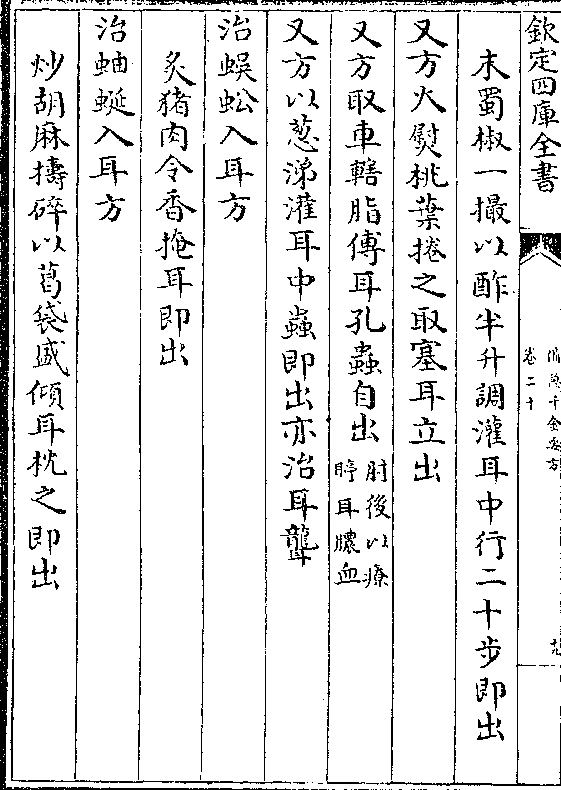 欽定四庫全書
備急千金要方
卷二十
九
末蜀椒一撮以酢半升調灌耳中行二十步即出
又方火熨桃葉捲之取塞耳立出
又方取車轄脂傅耳孔蟲自出肘後以療
聤耳膿血
又方以葱涕灌耳中蟲即出亦治耳聾
治蜈蚣入耳方
炙猪肉令香掩耳即出
治蚰蜒入耳方
炒胡麻擣碎以葛袋盛傾耳枕之即出